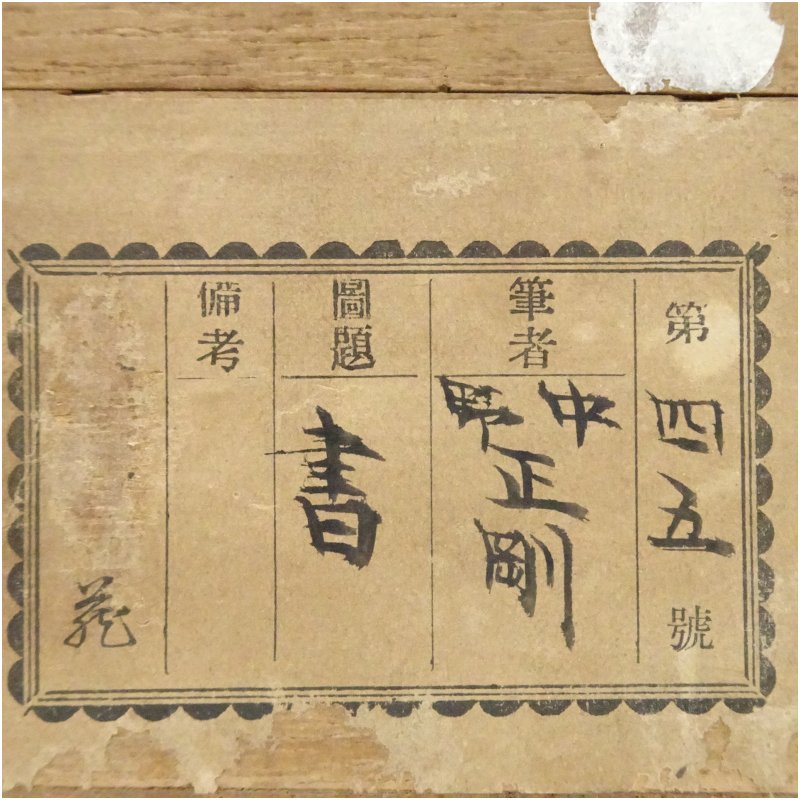 第四五號
筆者
中野
正剛
圖題
書
備考
蔵